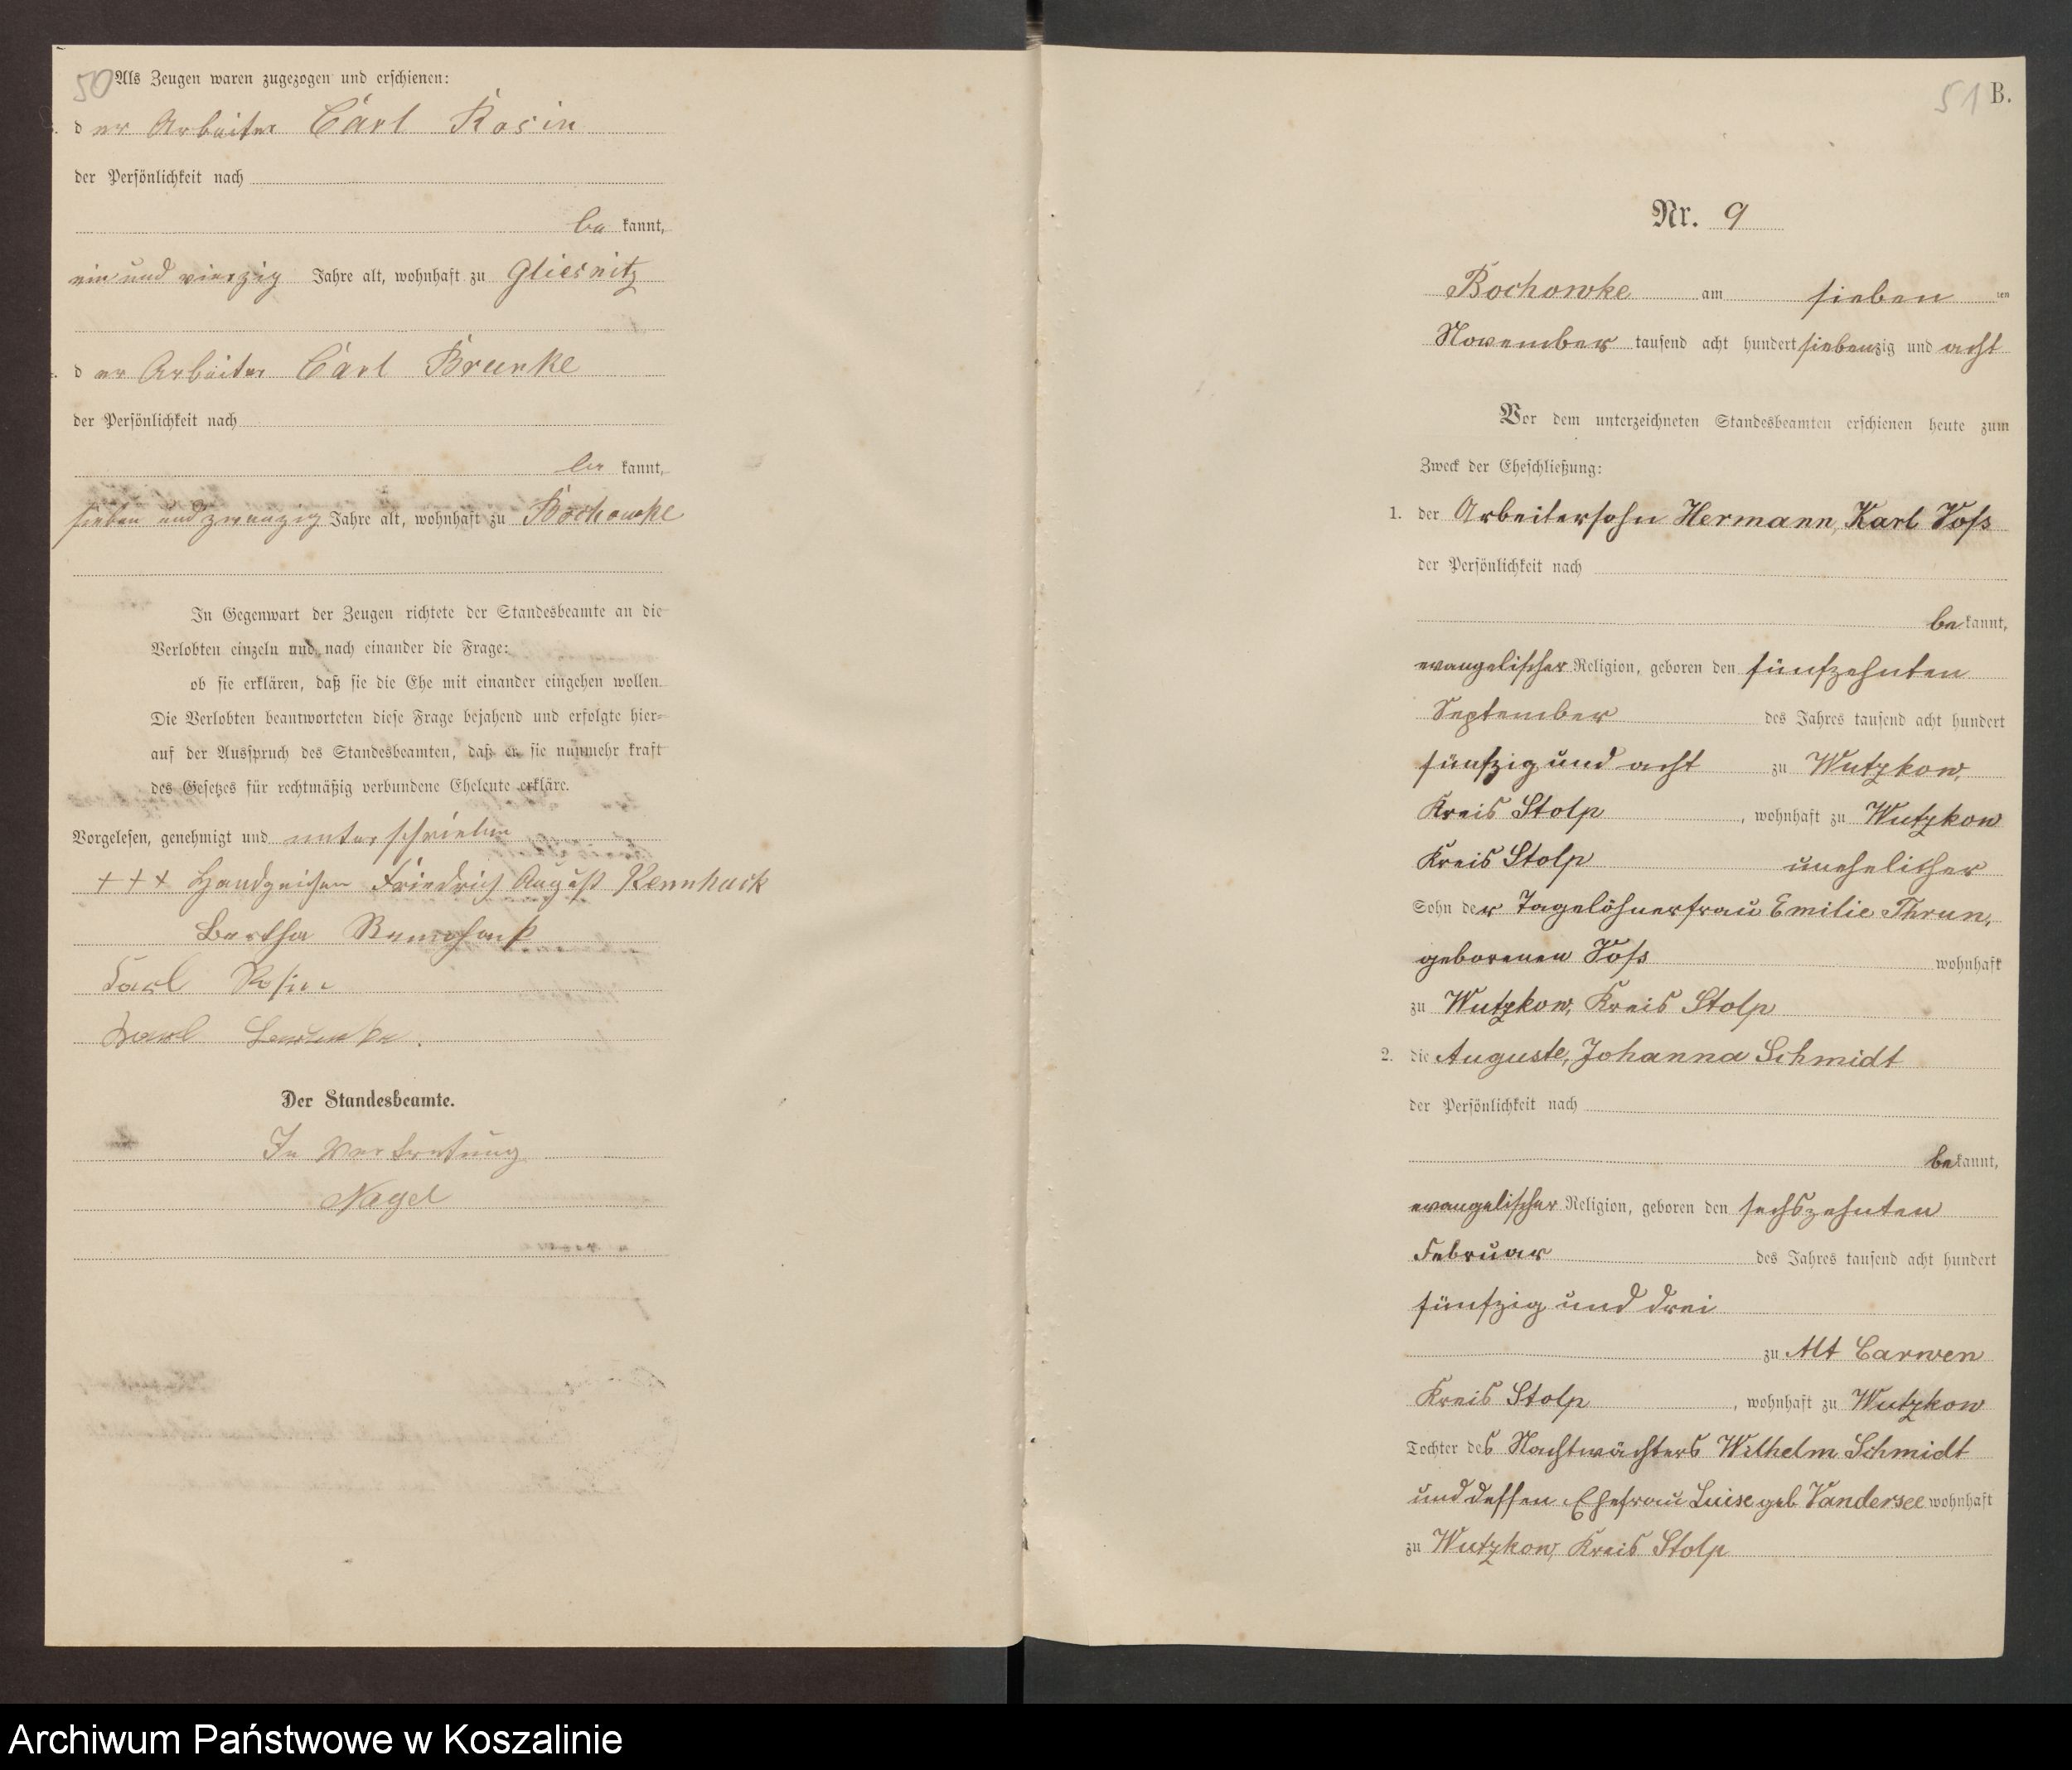 50 Als Zeugen waren zugezogen und erschienen:
der Arbeiter Carl Rosin
der Persönlichkeit nach
be kannt,
ein und vierzig Jahre alt, wohnhaft zu Gliesnitz
der Arbeiter Carl Brunke
der Persönlichkeit nach
be kannt,
sieben und zwanzig Jahre alt, wohnhaft zu Bochowke
In Gegenwart der Zeugen richtete der Standesbeamte an die
Verlobten einzeln und nach einander die Frage:
ob sie erklären, daß sie die Ehe mit einander eingehen wollen.
Die Verlobten beantworteten diese Frage bejahend und erfolgte hier-
auf der Ausspruch des Standesbeamten, daß er sie nunmehr kraft
des Gesetzes für rechtmäßig verbundene Eheleute erkläre.
Vorgelesen, genehmigt und unterschrieben
+++ Handzeichen Friedrich August Rennhack
Bertha
Carl Rosin
Karl
Der Standesbeamte.
In Vertretung
Nagel
51 B.
Nr. 9
Bochowke am sieben ten
November tausend acht hundert siebenzig und acht
Vor dem unterzeichneten Standesbeamten erschienen heute zum
Zweck der Eheschließung:
1. der Arbeitersohn Hermann, Karl Voss
der Persönlichkeit nach
be kannt,
evangelischer Religion, geboren den fünfzehnten
September des Jahres tausend acht hundert
fünfzig und acht zu Wutzkow,
Kreis Stolp, wohnhaft zu Wutzkow
Kreis Stolp unehelicher
Sohn der Tagelöhnerfrau Emilie Thrun,
geborenen Voss wohnhaft
zu Wutzkow, Kreis Stolp
2. die Auguste, Johanna Schmidt
der Persönlichkeit nach
be kannt,
evangelischer Religion, geboren den sechszehnten
Februar des Jahres tausend acht hundert
fünfzig und drei
zu Alt Carwen
Kreis Stolp, wohnhaft zu Wutzkow
Tochter des Nachtwächters Wilhelm Schmidt
und dessen Ehefrau Luise geb Vandersee wohnhaft
zu Wutzkow, Kreis Stolp
Archiwum Państwowe w Koszalinie